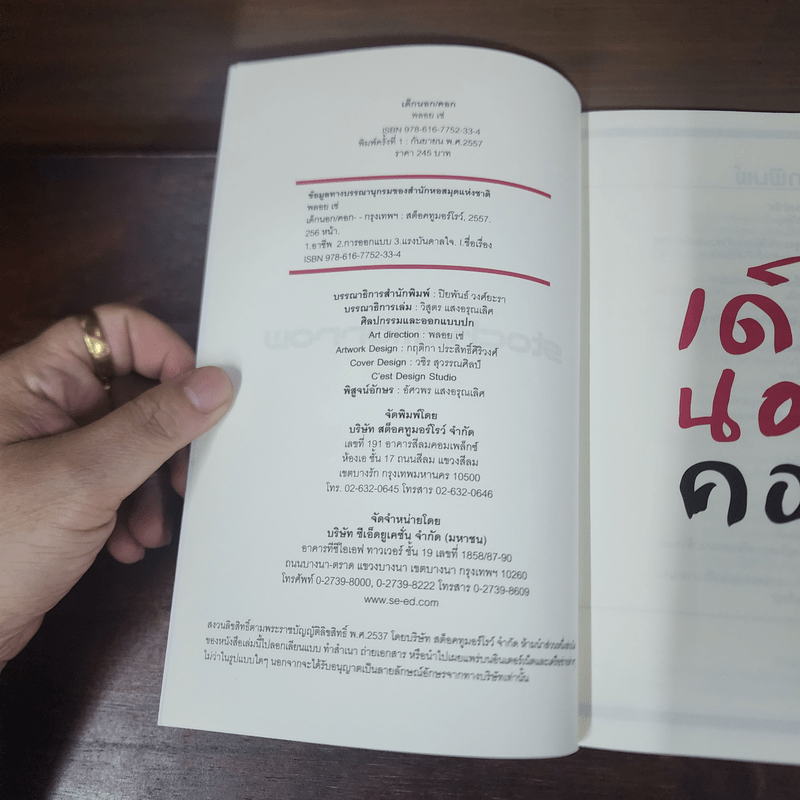 เด็กนอก/คอก
พลอย เซ่
ISBN 978-616-7752-33-4
พิมพ์ครั้งที่ 1 : กันยายน พ.ศ.2557
ราคา 245 บาท
ข้อมูลทางบรรณานุกรมของสำนักหอสมุดแห่งชาติ
พลอย เซ่
เด็กนอก/คอก- - กรุงเทพฯ : สต็อคทูมอร์โรว์, 2557.
256 หน้า.
1.อาชีพ 2.การออกแบบ 3.แรงบันดาลใจ. I.ชื่อเรื่อง
ISBN 978-616-7752-33-4
บรรณาธิการสำนักพิมพ์ : ปิยพันธ์ วงศ์ยะรา
บรรณาธิการเล่ม : วิสูตร แสงอรุณเลิศ
ศิลปกรรมและออกแบบปก
Art direction : พลอย เซ่
Artwork Design : กฤติกา ประสิทธิ์ศิริวงศ์
Cover Design : วชิร สุวรรณศิลป์
C'est Design Studio
พิสูจน์อักษร : อัศวพร แสงอรุณเลิศ
จัดพิมพ์โดย
บริษัท สต็อคทูมอร์โรว์ จำกัด
เลขที่ 191 อาคารสีลมคอมเพล็กซ์
ห้องเอ ชั้น 17 ถนนสีลม แขวงสีลม
เขตบางรัก กรุงเทพมหานคร 10500
โทร. 02-632-0645 โทรสาร 02-632-0646
จัดจำหน่ายโดย
บริษัท ซีเอ็ดยูเคชั่น จำกัด (มหาชน)
อาคารทีซีไอเอฟ ทาวเวอร์ ชั้น 19 เลขที่ 1858/87-90
ถนนบางนา-ตราด แขวงบางนา เขตบางนา กรุงเทพฯ 10260
โทรศัพท์ 0-2739-8000, 0-2739-8222 โทรสาร 0-2739-8609
www.se-ed.com
สงวนลิขสิทธิ์ตามพระราชบัญญัติลิขสิทธิ์ พ.ศ.2537 โดยบริษัท สต็อคทูมอร์โรว์ จำกัด ห้ามนำส่วนหนึ่งส่วนใด
ของหนังสือเล่มนี้ไปลอกเลียนแบบ ทำสำเนา ถ่ายเอกสาร หรือนำไปเผยแพร่บนอินเตอร์เน็ตและเครือข่ายต่างๆ
ไม่ว่าในรูปแบบใดๆ นอกจากจะได้รับอนุญาตเป็นลายลักษณ์อักษรจากทางบริษัทเท่านั้น
เด็
นอ
คอ